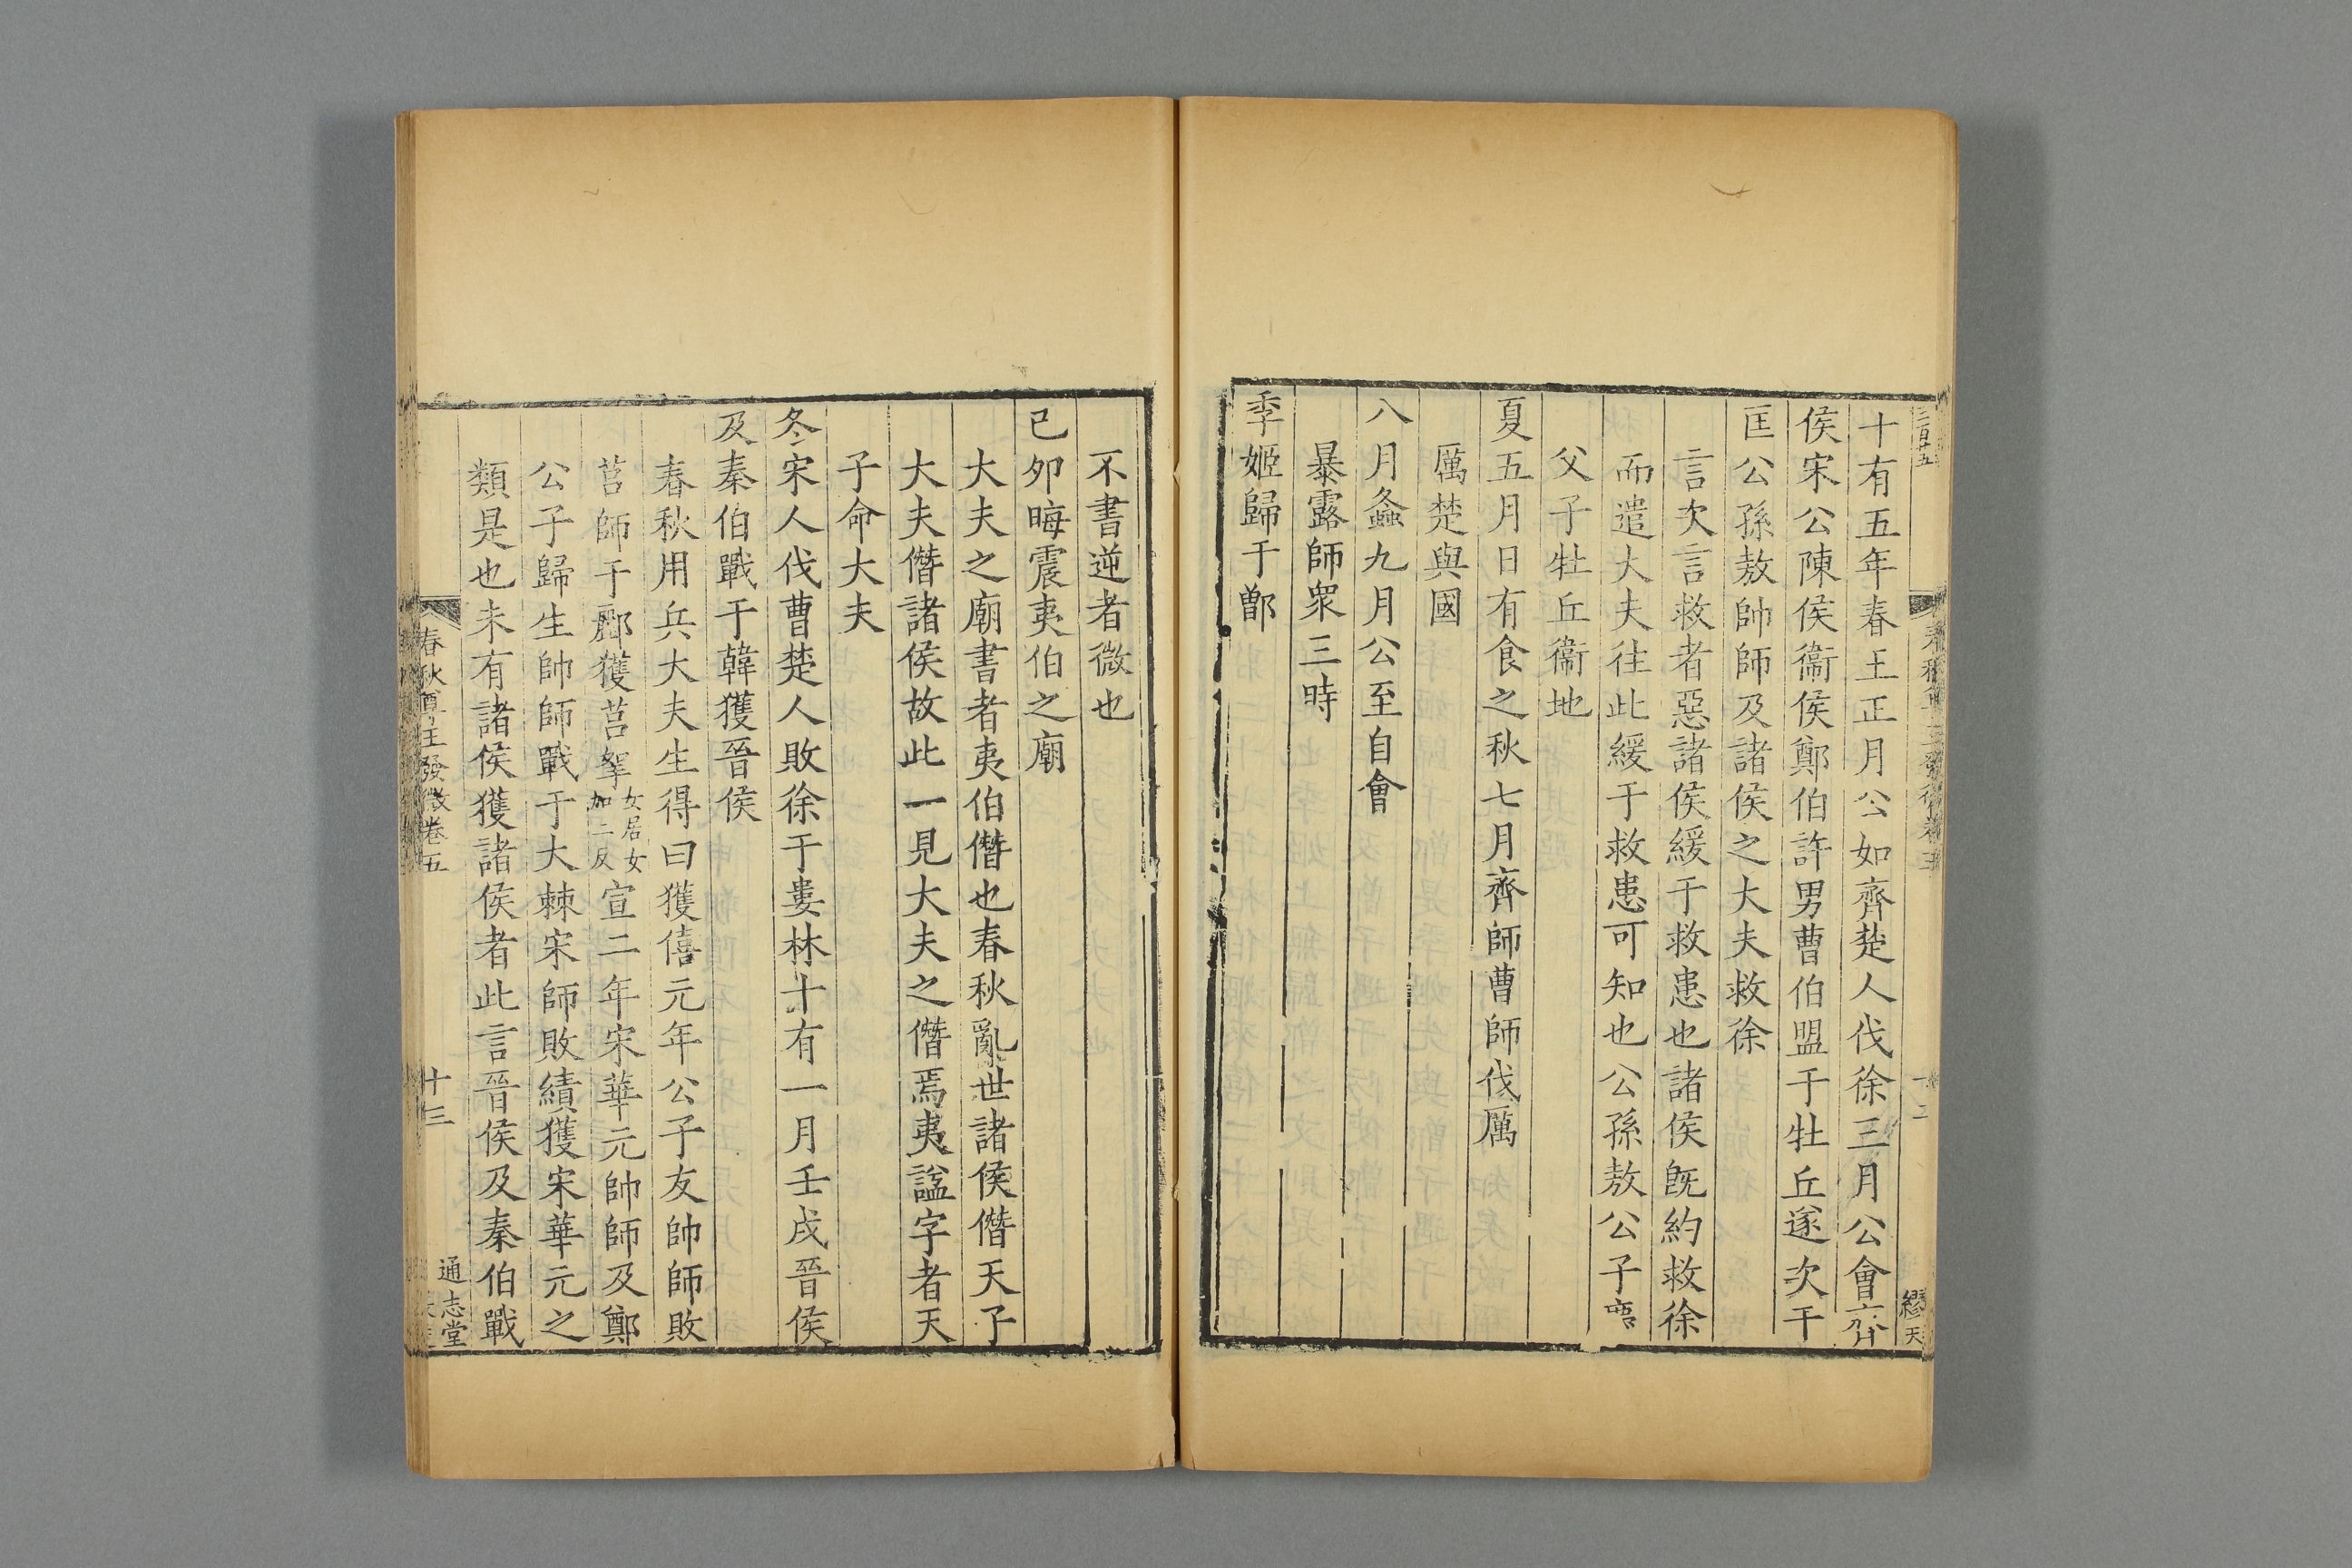 十有五年春王正月公如齊楚人伐徐三月公會齊
侯宋公陳侯衞侯鄭伯許男曹伯盟于牡丘遂次于
匡公孫敖帥師及諸侯之大夫救徐
言次言救者惡諸侯緩于救患也諸侯旣約救徐
而遣大夫往此緩于救患可知也公孫敖公子
父子牡丘衞地
夏五月日有食之秋七月齊師曹師伐厲
厲楚與國
八月螽九月公至自會
暴露師衆三時
季姬歸于鄫
不書逆者微也
己夘晦震夷伯之廟
大夫之廟書者夷伯僭也春秋亂世諸侯僭天子
大夫僭諸侯故此一見大夫之僭焉夷諡字者天
子命大夫
冬宋人伐曹楚人敗徐于婁林十有一月壬戌晉侯
及秦伯戰于韓獲晉侯
春秋用兵大夫生得曰獲僖元年公子友帥師敗
莒師于酈獲莒挐女居女加二反宣二年宋華元帥師及鄭
公子歸生帥師戰于大棘宋師敗績獲宋華元之
類是也未有諸侯獲諸侯者此言晉侯及秦伯戰
春秋尊王發微卷五
十三
通志堂